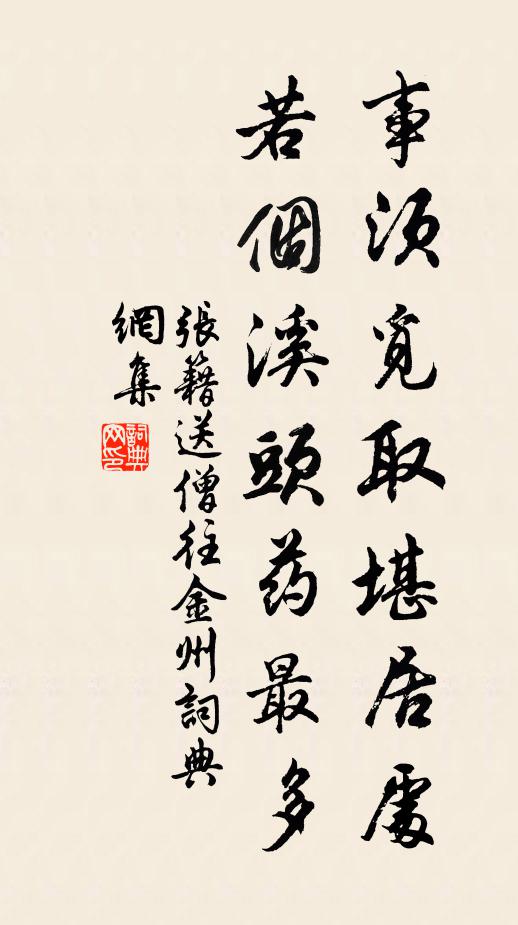 事須覓取堪居處
若個溪頭药最多
張籍送僧往金州詞典
網集
詞典
网印